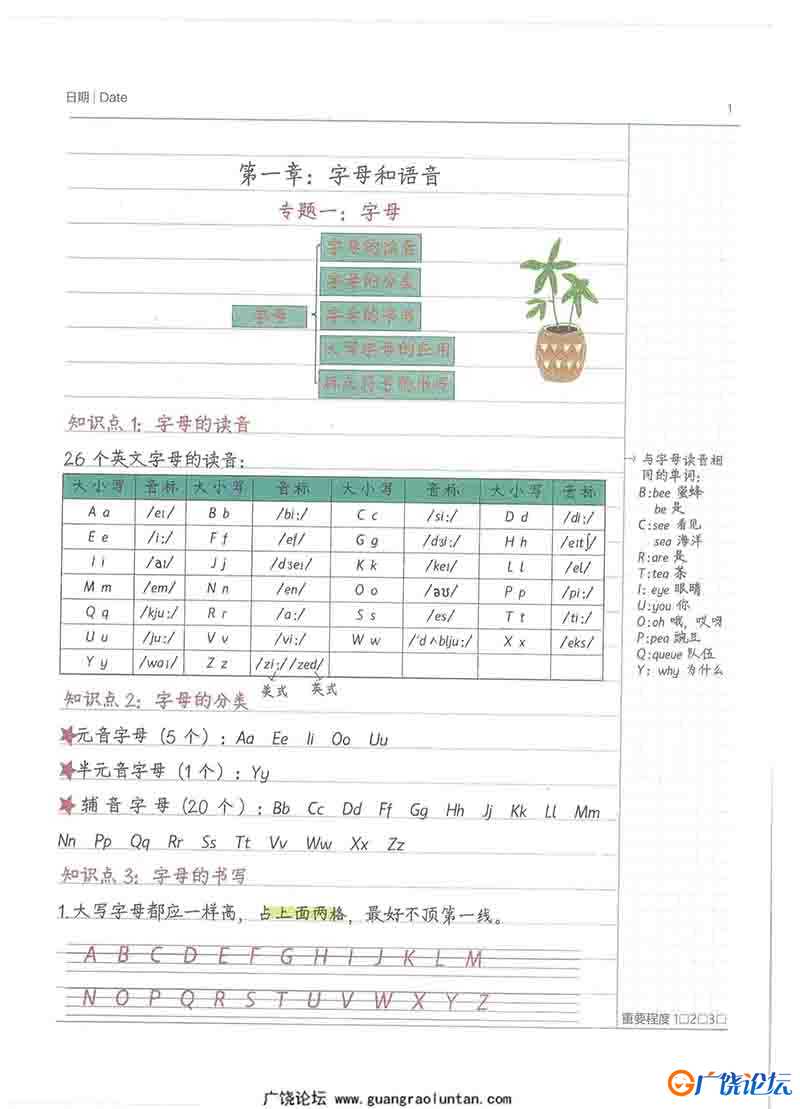 日期 | Date
1
第一章：字母和语音
专题一：字母
字母
字母的读音
字母的分类
字母的书写
大写字母的应用
标点符号的书写
知识点1：字母的读音
26个英文字母的读音：
大小写 音标 大小写 音标 大小写 音标 大小写 音标
A a /eɪ/ B b /biː/ C c /siː/ D d /diː/
E e /iː/ F f /ef/ G g /dʒiː/ H h /eɪtʃ/
I i /aɪ/ J j /dʒeɪ/ K k /keɪ/ L l /el/
M m /em/ N n /en/ O o /əʊ/ P p /piː/
Q q /kjuː/ R r /ɑː/ S s /es/ T t /tiː/
U u /juː/ V v /viː/ W w /ˈdʌbljuː/ X x /eks/
Y y /waɪ/ Z z /ziː/ /zed/
美式 英式
→ 与字母读音相
同的单词：
B:bee 蜜蜂
be 是
C:see 看见
sea 海洋
R:are 是
T:tea 茶
I: eye 眼睛
U:you 你
O:oh 哦，哎呀
P:pea 豌豆
Q:queue 队伍
Y: why 为什么
知识点2：字母的分类
★元音字母（5个）：Aa Ee Ii Oo Uu
★半元音字母（1个）：Yy
★辅音字母（20个）：Bb Cc Dd Ff Gg Hh Jj Kk Ll Mm
Nn Pp Qq Rr Ss Tt Vv Ww Xx Zz
知识点3：字母的书写
1.大写字母都应一样高，占上面两格，最好不顶第一线。
A B C D E F G H I J K L M
N O P Q R S T U V W X Y Z
重要程度 1□2□3□
广饶论坛
广饶论坛 www.guangraoluntan.com